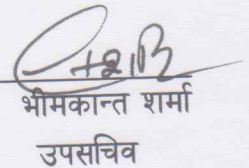 भीमकान्त शर्मा
उपसचिव